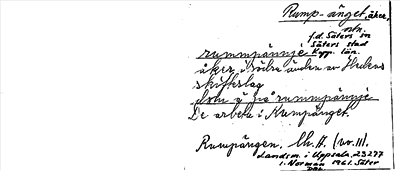 Rump-änget, åker,
ostn.
f.d. Säters sn
Säters stad
Kopp. län.
rummpännje
åker, i södra änden av Hedens
skifteslag
rummpännje
De arbeta i Rumpänget.
Rumpängen. Lh. H. (nr. III).
Landsm. i Uppsala 23277
i. Norman 1961. Säter
Dal.